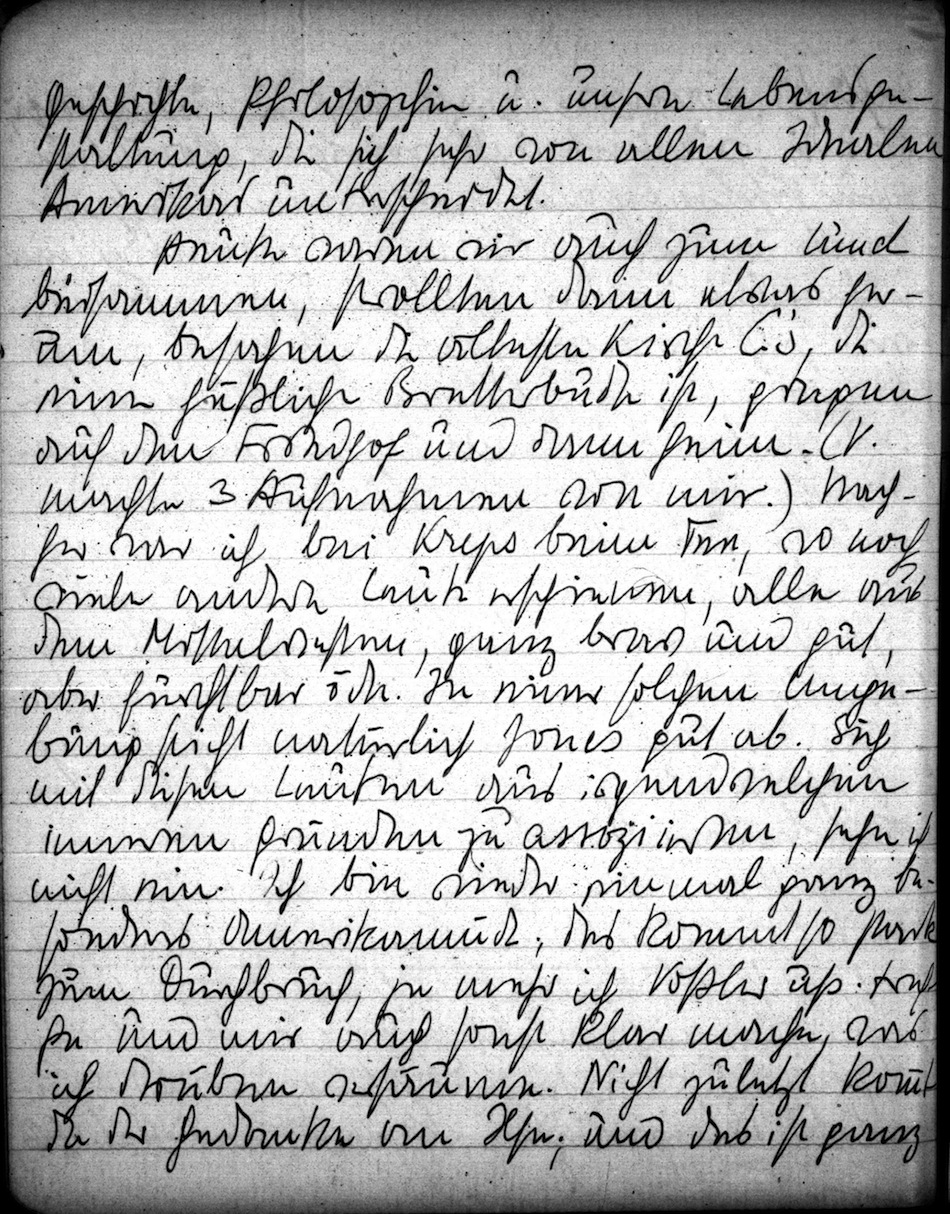 Geschichte, Philosophie u. unsere Lebensge-
staltung, die sich sehr von allen Idealen
Amerikas unterscheidet.
Heute waren wir auch zum Lunch
beisammen, trollten dann etwas her-
um, besahen die älteste Kirche C.'s, die
eine häßliche Bretterbude ist, gingen
auf den Friedhof und dann heim. (V.
machte 3 Aufnahmen von mir.) Nach-
her war ich bei Kreps beim Tee, wo noch
viele andere Leute erschienen, alle aus
dem Mittelwesten, ganz brav und gut,
aber furchtbar öde. In einer solchen Umge-
bung sticht natürlich Jones gut ab. Sich
mit diesen Leuten aus irgendwelchen
inneren Gründen zu assoziieren, sehe ich
nicht ein. Ich bin wieder einmal ganz be-
sonders amerikamüde; das kommt so stark
zum Durchbruch, je mehr ich Voßler
und mir auch sonst klar mache, was
ich drüben versäume. Nicht zuletzt kommt
da der Gedanke an und das ist ganz